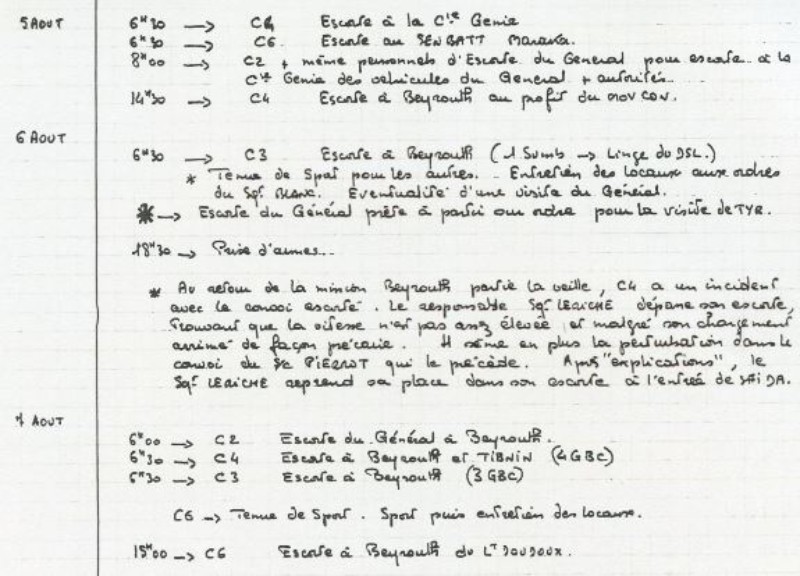 5 AOUT 6H30 → C4 Escorte à la Cie Genie
6H30 → C6 Escorte au SENBATT Maraka.
8H00 → C2 + même personnels d'Escorte du General pour escorte à la
Cie Genie des véhicules du General + autorités.
14H30 → C4 Escorte à Beyrouth au profit du MOVCON.
6 AOUT
6H30 → C3 Escorte à Beyrouth (1 Sumb → Linge du DSL.)
* Tenue de Sport pour les autres. - Entretien des locaux aux ordres
du Sgt BLANC. Eventualité d'une visite du Général.
* → Escorte du Général prête à partir sur ordre pour la visite de TYR.
18H30 → Prise d'armes...
* Au retour de la mission Beyrouth partie la veille, C4 a un incident
avec le convoi escorté. Le responsable Sgt LERICHE dépasse son escorte,
trouvant que la vitesse n'est pas assez élevée et malgré son chargement
arrimé de façon précaire. Il sème en plus la perturbation dans le
convoi du Sc PIERROT qui le précède. Après "explications", le
Sgt LERICHE reprend sa place dans son escorte à l'entrée de SAIDA.
7 AOUT
6H00 → C2 Escorte du Général à Beyrouth.
6H30 → C4 Escorte à Beyrouth et TIBNIN (4 GBC)
6H30 → C3 Escorte à Beyrouth (3 GBC)
C6 → Tenue de Sport. Sport puis entretien des locaux.
15H00 → C6 Escorte à Beyrouth du Lt DOUDOUX.